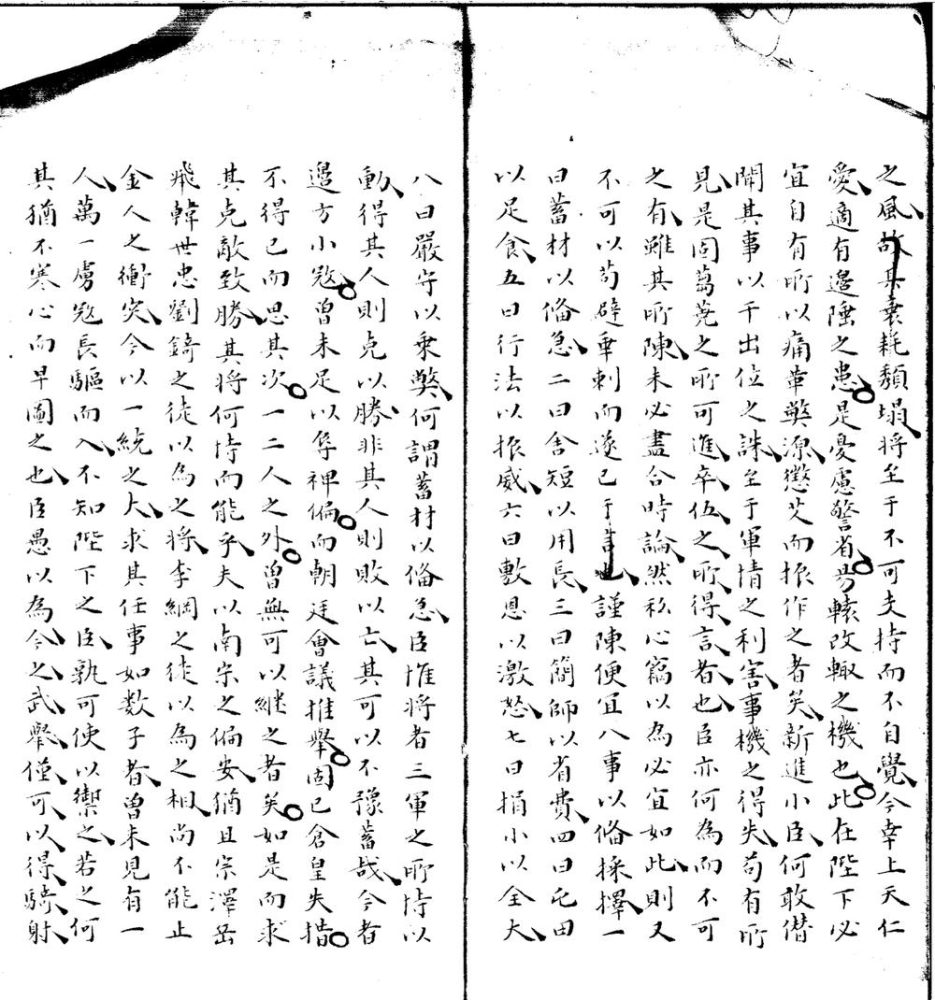 之風故其衰耗頹塌將至于不可支持而不自覺今幸上天仁
愛適有邊陲之患是憂慮警省易轅改轍之機也此在陛下必
宜自有所以痛革弊源懲艾而振作之者矣新進小臣何敢僣
聞其事以干出位之誅至于軍情之利害事機之得失苟有所
見是固蒭蕘之所可進卒伍之所得言者也臣亦何為而不可
之有雖其所陳未必盡合時論然私心竊以為必宜如此則又
不可以苟避乖剌而遂已于言也謹陳便宜八事以俻採擇一
曰蓄材以俻急二曰舍短以用長三曰簡師以省費四曰屯田
以足食五曰行法以振威六曰敷恩以激怒七曰捐小以全大
八曰嚴守以乘弊何謂蓄材以俻急臣惟將者三軍之所恃以
動得其人則克以勝非其人則敗以亡其可以不豫蓄哉今者
邊方小宼曾未足以辱裨偏而朝廷會議推舉固已倉皇失措
不得已而思其次一二人之外曾無可以継之者矣如是而求
其克敵致勝其將何恃而能乎夫以南宋之偏安猶且宗澤岳
飛韓世忠劉錡之徒以為之將李綱之徒以為之相尚不能止
金人之衝突今以一統之大求其任事如数子者曾未見有一
人萬一虜宼長驅而入不知陛下之臣孰可使以禦之若之何
其猶不寒心而早圖之也臣愚以為今之武舉僅可以得騎射